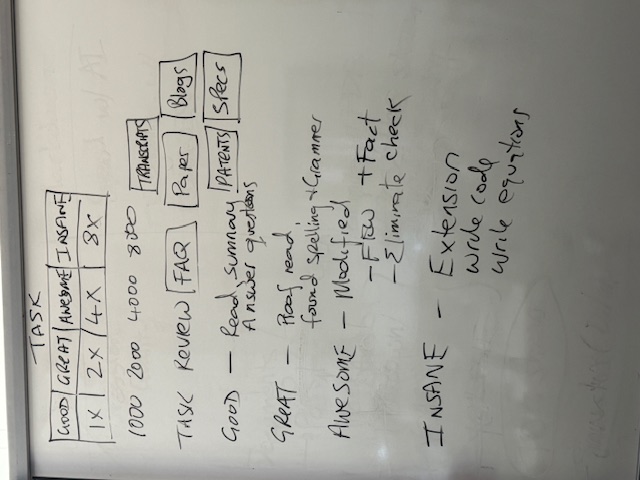 TASK
GOOD GREAT AWESOME INSANE
1X 2X 4X 8X
1000 2000 4000 8000 TRANSCRIPTS
TASK REVIEW FAQ Paper Blogs
GOOD — Read, summary PATENTS SPECS
Answer questions
GREAT — Proof read,
found spelling + Grammer
AWESOME — Modified
– Flow + Fact
– Eliminate check
INSANE — Extension
write code
write equations